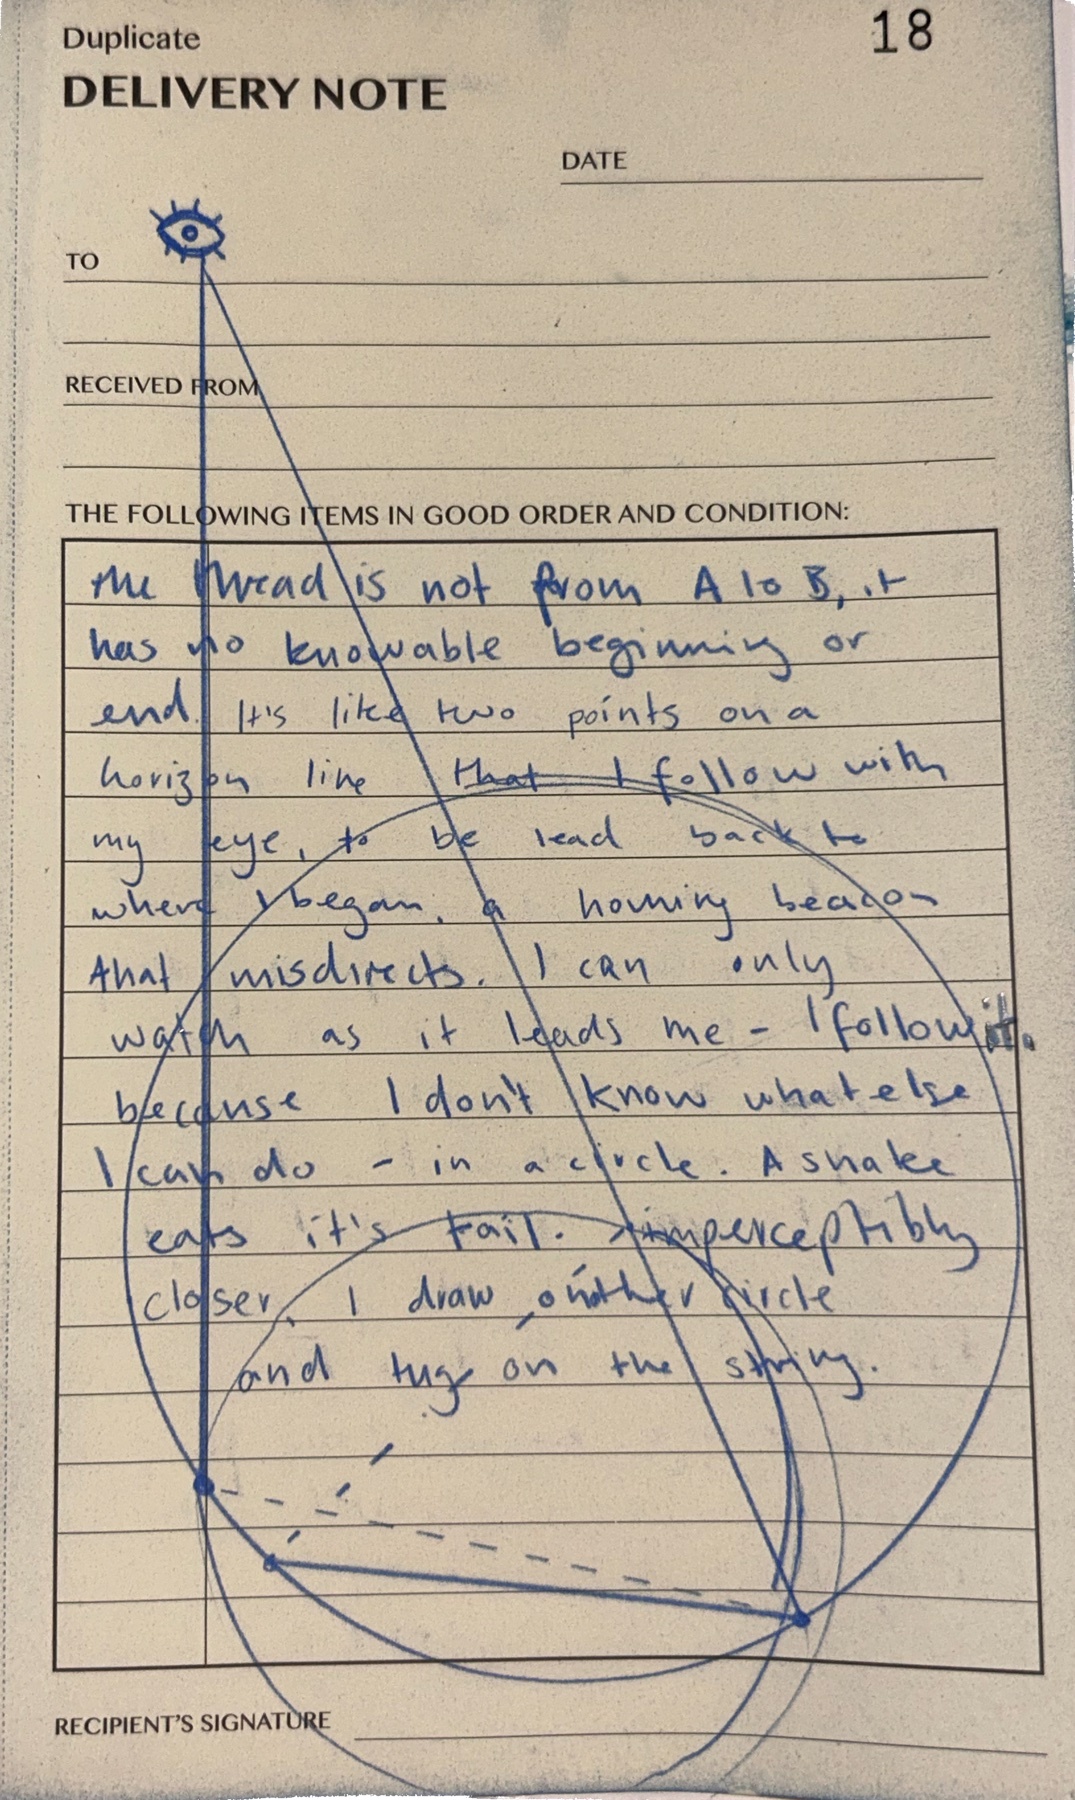 Duplicate
18
DELIVERY NOTE
DATE
TO
RECEIVED FROM
THE FOLLOWING ITEMS IN GOOD ORDER AND CONDITION:
the thread is not from A to B, it
has no knowable beginning or
end. It's like two points on a
horizon line that I follow with
my eye, to be lead back to
where I began, a homing beacon
that misdirects. I can only
watch as it leads me - I follow it.
because I don't know what else
I can do - in a circle. A snake
eats it's tail. imperceptibly
closer, I draw another circle
and tug on the string.
RECIPIENT'S SIGNATURE